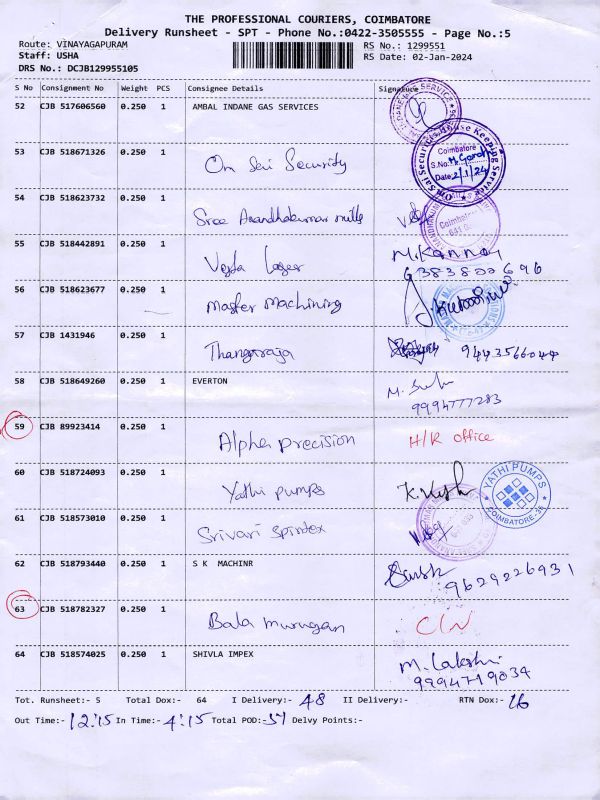 THE PROFESSIONAL COURIERS, COIMBATORE
Delivery Runsheet - SPT - Phone No.:0422-3505555 - Page No.:5
Route: VINAYAGAPURAM RS No.: 1299551
Staff: USHA RS Date: 02-Jan-2024
DRS No.: DCJB129955105
S No Consignment No Weight PCS Consignee Details Signature
52 CJB 517606560 0.250 1 AMBAL INDANE GAS SERVICES
53 CJB 518671326 0.250 1 Om Sai Security
Coimbatore
S.No:
Date: 2/1/24
54 CJB 518623732 0.250 1 Sree Anandhakumar mills
55 CJB 518442891 0.250 1 Vejda laser M.Kannan
6383800696
56 CJB 518623677 0.250 1 Master Machining
57 CJB 1431946 0.250 1 Thangaraja 9443566044
58 CJB 518649260 0.250 1 EVERTON
9994777283
59 CJB 89923414 0.250 1 Alpha precision H/R office
60 CJB 518724093 0.250 1 Yathi pumps
YATHI PUMPS
COIMBATORE-35
61 CJB 518573010 0.250 1 Srivari spintex
62 CJB 518793440 0.250 1 S K MACHINR
9629226931
63 CJB 518782327 0.250 1 Bala murugan C/N
64 CJB 518574025 0.250 1 SHIVLA IMPEX M. Lakshmi
9994719034
Tot. Runsheet:- 5 Total Dox:- 64 I Delivery:- 48 II Delivery:- RTN Dox:- 16
Out Time:- 12:15 In Time:- 4:15 Total POD:- 57 Delvy Points:-